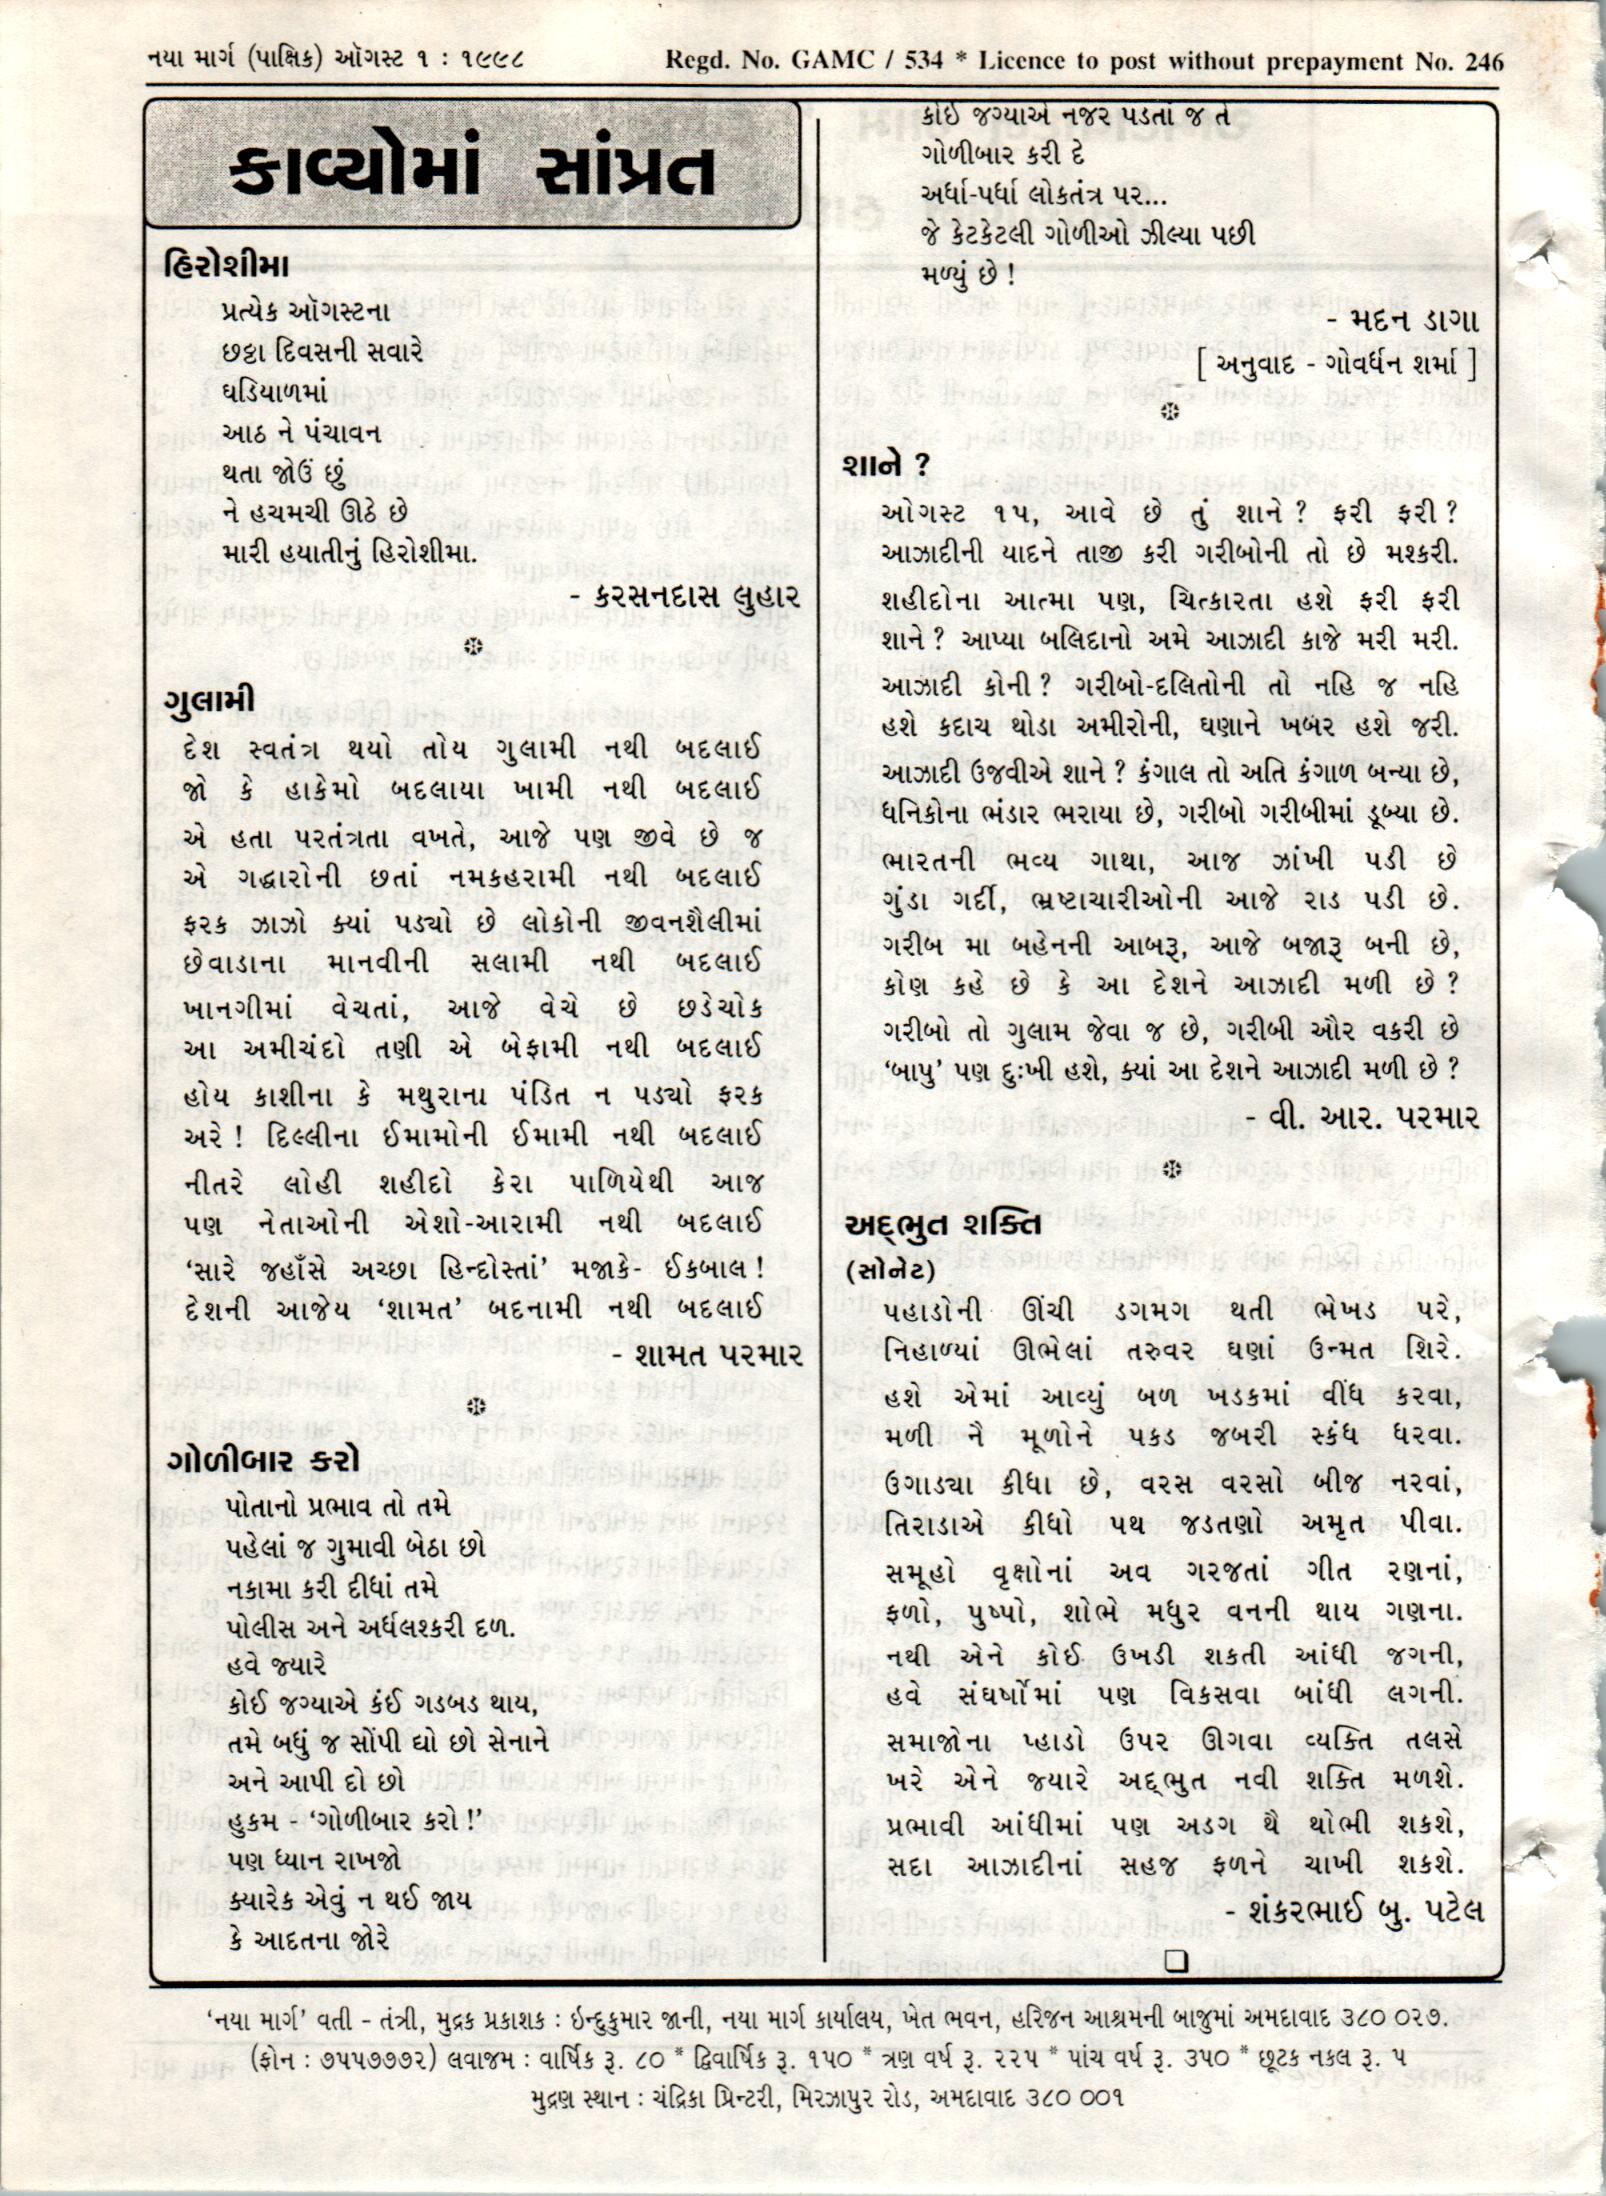 નયા માર્ગ (પાક્ષિક) ઑગસ્ટ ૧ : ૧૯૯૮
Regd. No. GAMC / 534 * Licence to post without prepayment No. 246
કાવ્યોમાં સાંપ્રત
હિરોશીમા
પ્રત્યેક ઑગસ્ટના
છઠ્ઠા દિવસની સવારે
ઘડિયાળમાં
આઠ ને પંચાવન
થતા જોઉં છું
ને હચમચી ઊઠે છે
મારી હયાતીનું હિરોશીમા.
- કરસનદાસ લુહાર
ગુલામી
દેશ સ્વતંત્ર થયો તોય ગુલામી નથી બદલાઈ
જો કે હાકેમો બદલાયા ખામી નથી બદલાઈ
એ હતા પરતંત્રતા વખતે, આજે પણ જીવે છે જ
એ ગદ્ધારોની છતાં નમકહરામી નથી બદલાઈ
ફરક ઝાઝો ક્યાં પડ્યો છે લોકોની જીવનશૈલીમાં
છેવાડાના માનવીની સલામી નથી બદલાઈ
ખાનગીમાં વેચતાં, આજે વેચે છે છડેચોક
આ અમીચંદો તણી એ બેફામી નથી બદલાઈ
હોય કાશીના કે મથુરાના પંડિત ન પડ્યો ફરક
અરે ! દિલ્લીના ઈમામોની ઈમામી નથી બદલાઈ
નીતરે લોહી શહીદો કેરા પાળિયેથી આજ
પણ નેતાઓની એશો-આરામી નથી બદલાઈ
‘સારે જહાઁસે અચ્છા હિન્દોસ્તાં’ મજાકે- ઈકબાલ !
દેશની આજેય ‘શામત’ બદનામી નથી બદલાઈ
- શામત પરમાર
ગોળીબાર કરો
પોતાનો પ્રભાવ તો તમે
પહેલાં જ ગુમાવી બેઠા છો
નકામા કરી દીધાં તમે
પોલીસ અને અર્ધલશ્કરી દળ.
હવે જયારે
કોઈ જગ્યાએ કંઈ ગડબડ થાય,
તમે બધું જ સોંપી દ્યો છો સેનાને
અને આપી દો છો
હુકમ - ‘ગોળીબાર કરો !’
પણ ધ્યાન રાખજો
ક્યારેક એવું ન થઈ જાય
કે આદતના જોરે
કોઈ જગ્યાએ નજર પડતાં જ તે
ગોળીબાર કરી દે
અર્ધા-પર્ધા લોકતંત્ર પર...
જે કેટકેટલી ગોળીઓ ઝીલ્યા પછી
મળ્યું છે !
- મદન ડાગા
[ અનુવાદ - ગોવર્ધન શર્મા ]
શાને ?
ઓગસ્ટ ૧૫, આવે છે તું શાને ? ફરી ફરી ?
આઝાદીની યાદને તાજી કરી ગરીબોની તો છે મશ્કરી.
શહીદોના આત્મા પણ, ચિત્કારતા હશે ફરી ફરી
શાને ? આપ્યા બલિદાનો અમે આઝાદી કાજે મરી મરી.
આઝાદી કોની ? ગરીબો-દલિતોની તો નહિ જ નહિ
હશે કદાચ થોડા અમીરોની, ઘણાને ખબર હશે જરી.
આઝાદી ઉજવીએ શાને ? કંગાલ તો અતિ કંગાળ બન્યા છે,
ધનિકોના ભંડાર ભરાયા છે, ગરીબો ગરીબીમાં ડૂબ્યા છે.
ભારતની ભવ્ય ગાથા, આજ ઝાંખી પડી છે
ગુંડા ગર્દી, ભ્રષ્ટાચારીઓની આજે રાડ પડી છે.
ગરીબ મા બહેનની આબરૂ, આજે બજારૂ બની છે,
કોણ કહે છે કે આ દેશને આઝાદી મળી છે ?
ગરીબો તો ગુલામ જેવા જ છે, ગરીબી ઔર વકરી છે
‘બાપુ’ પણ દુઃખી હશે, ક્યાં આ દેશને આઝાદી મળી છે ?
- વી. આર. પરમાર
અદ્ભુત શક્તિ
(સોનેટ)
પહાડોની ઊંચી ડગમગ થતી ભેખડ પરે,
નિહાળ્યાં ઊભેલાં તરુવર ઘણાં ઉન્મત શિરે.
હશે એમાં આવ્યું બળ ખડકમાં વીંધ કરવા,
મળી નૈ મૂળોને પકડ જબરી સ્કંધ ધરવા.
ઉગાડ્યા કીધા છે, વરસ વરસો બીજ નરવાં,
તિરાડાએ કીધો પથ જડતણો અમૃત પીવા.
સમૂહો વૃક્ષોનાં અવ ગરજતાં ગીત રણનાં,
ફળો, પુષ્પો, શોભે મધુર વનની થાય ગણના.
નથી એને કોઈ ઉખડી શકતી આંધી જગની,
હવે સંઘર્ષોમાં પણ વિકસવા બાંધી લગની.
સમાજોના પ્હાડો ઉપર ઊગવા વ્યક્તિ તલસે
ખરે એને જયારે અદ્ભુત નવી શક્તિ મળશે.
પ્રભાવી આંધીમાં પણ અડગ થૈ થોભી શકશે,
સદા આઝાદીનાં સહજ ફળને ચાખી શકશે.
- શંકરભાઈ બુ. પટેલ
‘નયા માર્ગ’ વતી - તંત્રી, મુદ્રક પ્રકાશક : ઇન્દુકુમાર જાની, નયા માર્ગ કાર્યાલય, ખેત ભવન, હરિજન આશ્રમની બાજુમાં અમદાવાદ ૩૮૦ ૦૨૭.
(ફોન : ૭૫૫૭૭૭૨) લવાજમ : વાર્ષિક રૂ. ૮૦ * દ્વિવાર્ષિક રૂ. ૧૫૦ * ત્રણ વર્ષ રૂ. ૨૨૫ * પાંચ વર્ષ રૂ. ૩૫૦ * છૂટક નકલ રૂ. ૫
મુદ્રણ સ્થાન : ચંદ્રિકા પ્રિન્ટરી, મિરઝાપુર રોડ, અમદાવાદ ૩૮૦ ૦૦૧